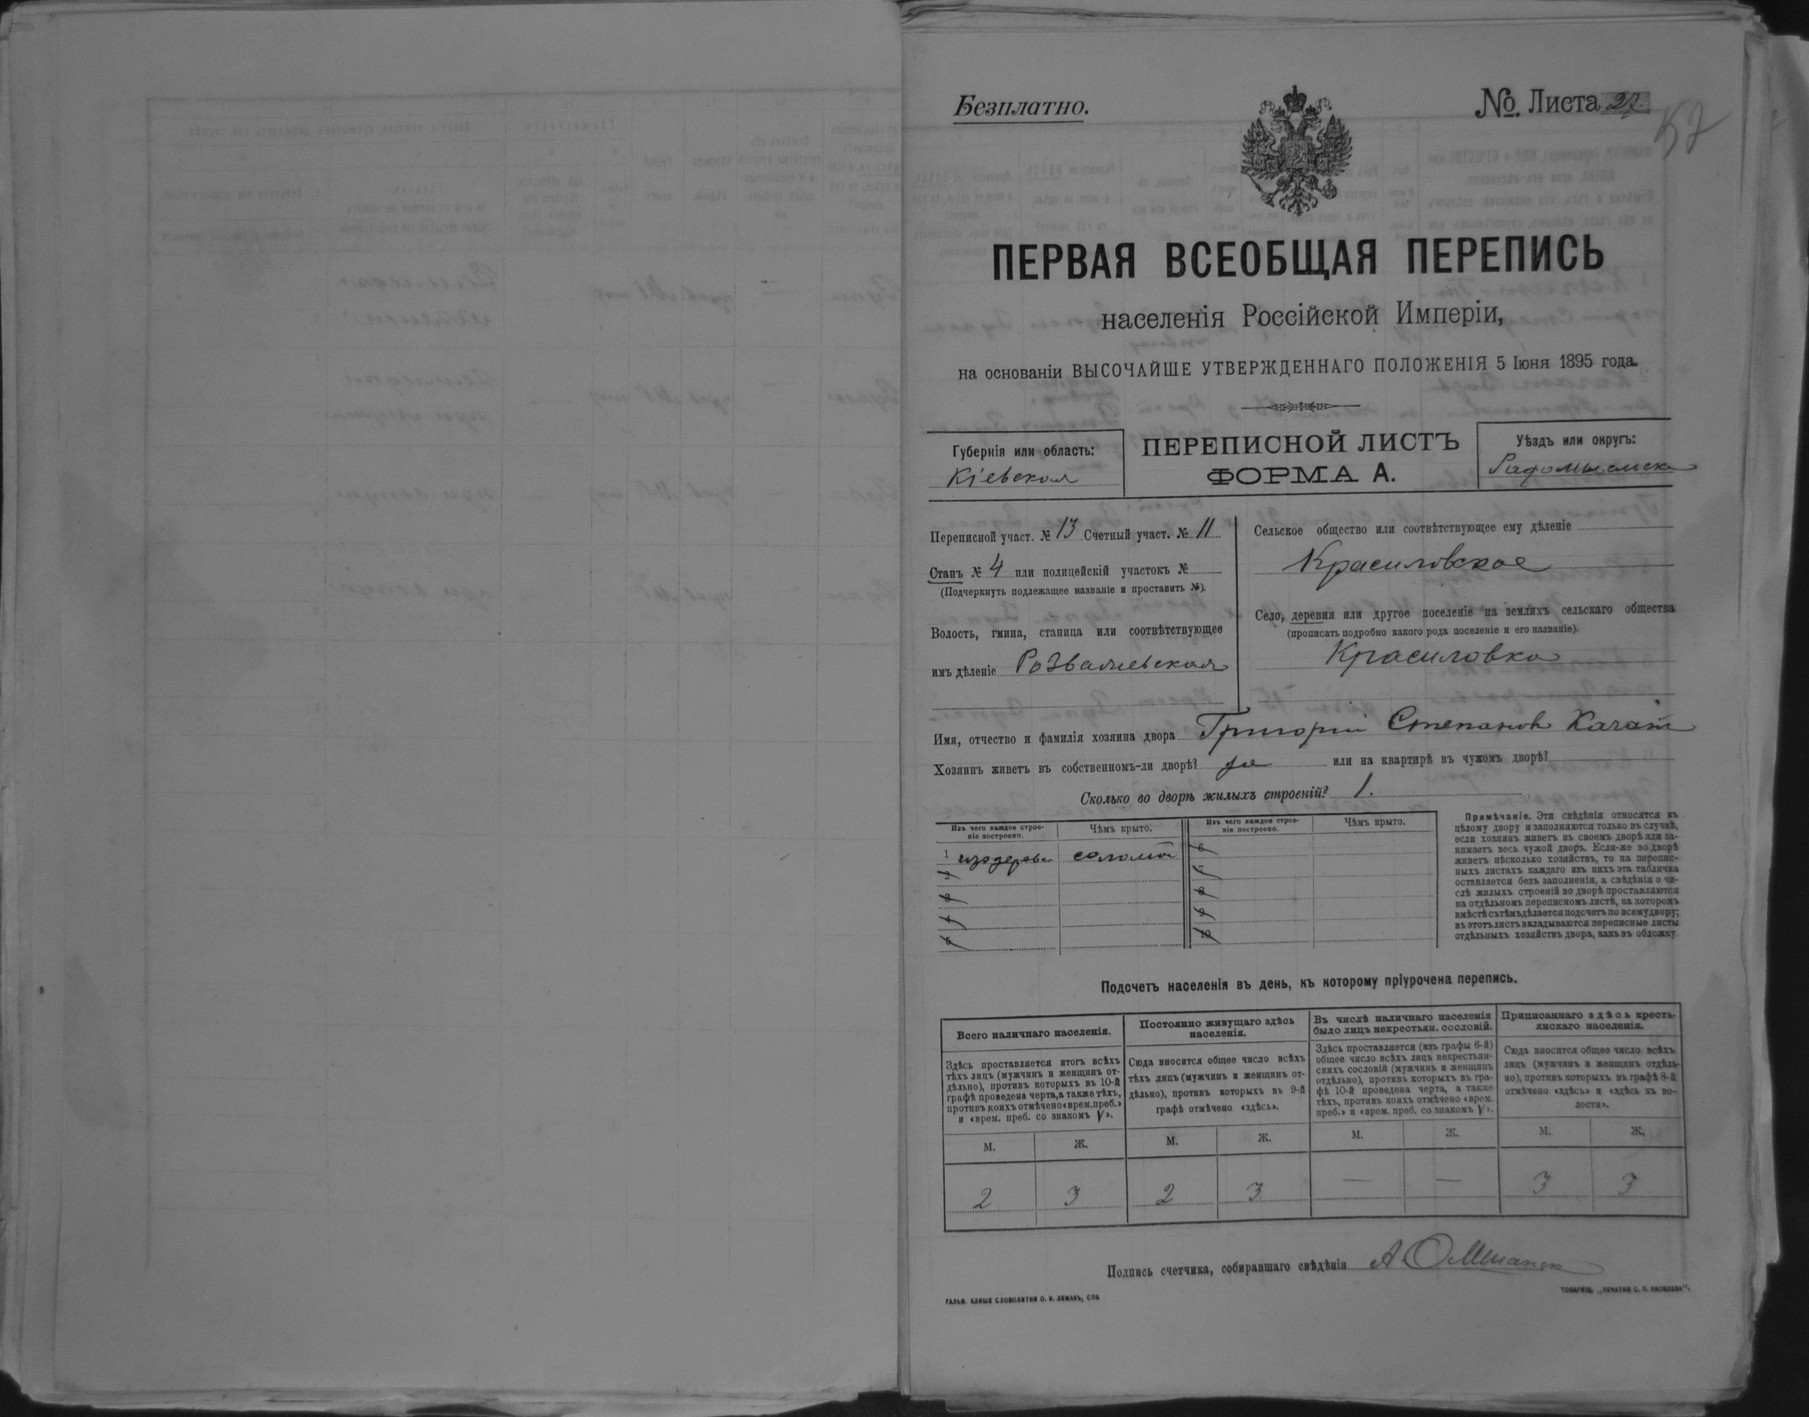 Безплатно.
№ Листа 27.
57
ПЕРВАЯ ВСЕОБЩАЯ ПЕРЕПИСЬ
населенія Россійской Имперіи,
на основаніи ВЫСОЧАЙШЕ УТВЕРЖДЕННАГО ПОЛОЖЕНІЯ 5 Іюня 1895 года.
Губернія или область:
Кіевская
ПЕРЕПИСНОЙ ЛИСТЪ
ФОРМА А.
Уѣздъ или округъ:
Радомысльск
Переписной участ. № 13 Счетный участ. № 11
Станъ № 4 или полицейскій участокъ №
(Подчеркнуть подлежащее названіе и проставить №).
Волость, гмина, станица или соотвѣтствующее
имъ дѣленіе Розважевская
Сельское общество или соотвѣтствующее ему дѣленіе
Красиловское
Село, деревня или другое поселеніе на земляхъ сельскаго общества
(прописать подробно какого рода поселеніе и его названіе).
Красиловка
Имя, отчество и фамилія хозяина двора Григорій Степановъ Качан
Хозяинъ живетъ въ собственномъ-ли дворѣ? да или на квартирѣ въ чужомъ дворѣ?
Сколько во дворѣ жилыхъ строеній? 1.
Изъ чего каждое строе-
ніе построено.
Чѣмъ крыто.
Изъ чего каждое строе-
ніе построено.
Чѣмъ крыто.
1 изъ дерева солом
2
3
4
5
6
7
8
9
10
Примѣчаніе. Эти свѣдѣнія относятся къ
цѣлому двору и заполняются только въ случаѣ,
если хозяинъ живетъ въ своемъ дворѣ или за-
нимаетъ весь чужой дворъ. Если-же во дворѣ
живетъ нѣсколько хозяйствъ, то на перепис-
ныхъ листахъ каждаго изъ нихъ эта табличка
оставляется безъ заполненія, а свѣдѣнія о чи-
слѣ жилыхъ строеній во дворѣ проставляются
на отдѣльномъ переписномъ листѣ, на которомъ
вмѣстѣ съ тѣмъ дѣлается подсчетъ по всему двору;
въ этотъ листъ вкладываются переписные листы
отдѣльныхъ хозяйствъ двора, какъ въ обложку.
Подсчетъ населенія въ день, къ которому пріурочена перепись.
Всего наличнаго населенія.
Здѣсь проставляется итогъ всѣхъ
тѣхъ лицъ (мужчинъ и женщинъ от-
дѣльно), противъ которыхъ въ 10-й
графѣ проведена черта, а также тѣхъ,
противъ коихъ отмѣчено «врем. преб.»
и «врем. преб. со знакомъ V».
Постоянно живущаго здѣсь
населенія.
Сюда вносится общее число всѣхъ
тѣхъ лицъ (мужчинъ и женщинъ от-
дѣльно), противъ которыхъ въ 9-й
графѣ отмѣчено «здѣсь».
Въ числѣ наличнаго населенія
было лицъ некрестьян. сословій.
Здѣсь проставляется (изъ графы 6-й)
общее число всѣхъ лицъ некрестьян-
скихъ сословій (мужчинъ и женщинъ
отдѣльно), противъ которыхъ въ гра-
фѣ 10-й проведена черта, а также
тѣхъ, противъ коихъ отмѣчено «врем.
преб.» и «врем. преб. со знакомъ V».
Приписаннаго здѣсь кресть-
янскаго населенія.
Сюда вносится общее число всѣхъ
лицъ (мужчинъ и женщинъ отдѣль-
но), противъ которыхъ въ графѣ 8-й
отмѣчено «здѣсь» и «здѣсь къ во-
лости».
М. Ж. М. Ж. М. Ж. М. Ж.
2 3 2 3 — — 3 3
Подпись счетчика, собиравшаго свѣдѣнія А.
ГАЛЬВ. КЛИШЕ СЛОВОЛИТНИ О. И. ЛЕМАНЪ, СПБ
ТОВАРИЩ. „ПЕЧАТНЯ С. П. ЯКОВЛЕВА".